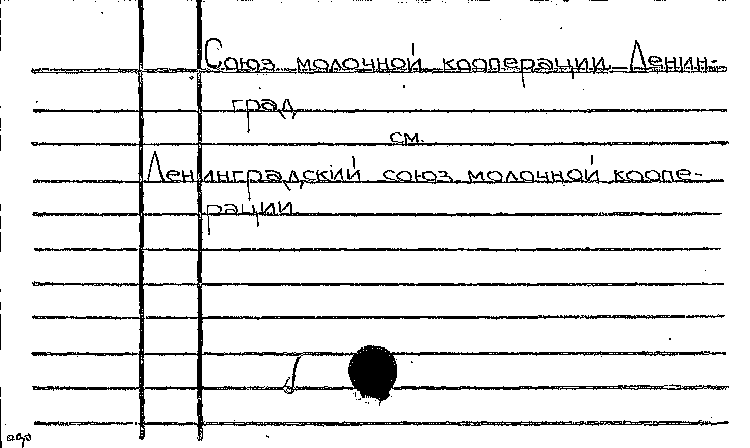 Союз молочной кооперации Ленин-
град
см.
Ленинградский союз молочной коопе-
рации